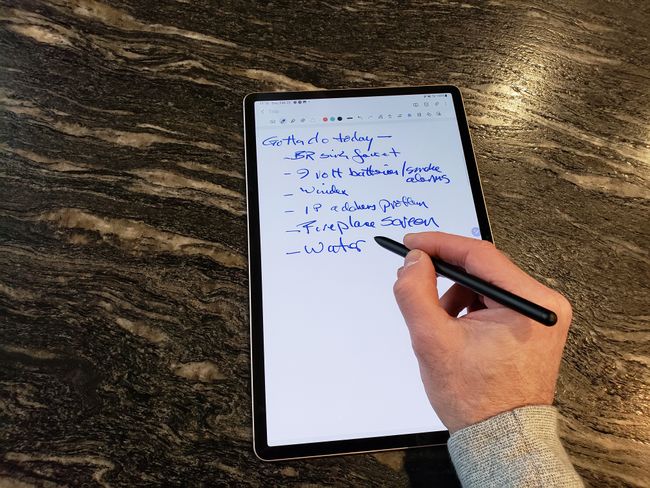 Gotta do today —
- BR sink faucet
- 9 volt batteries/smoke
alarms
- Windex
- IP address problem
- Fireplace screen
- Water